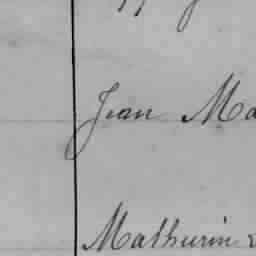 Jean Ma
Mathurin